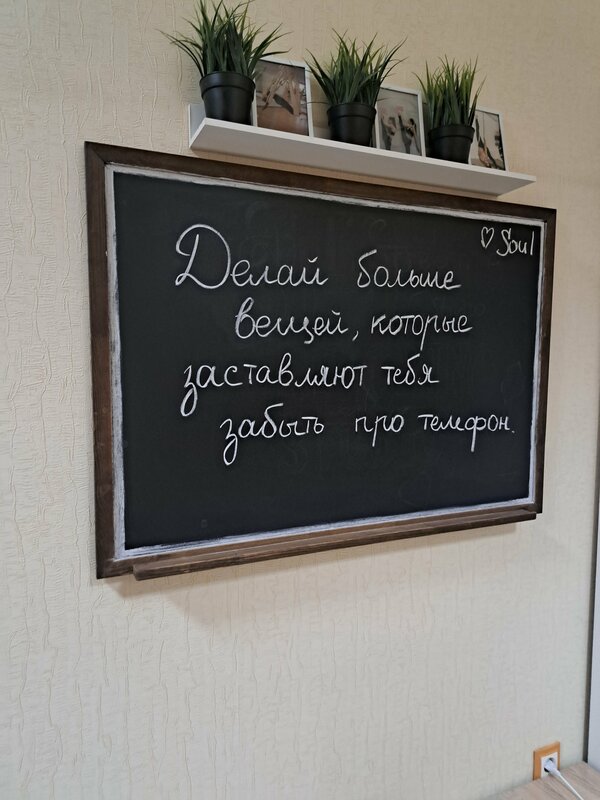 ♡ Soul
Делай больше
вещей, которые
заставляют тебя
забыть про телефон.